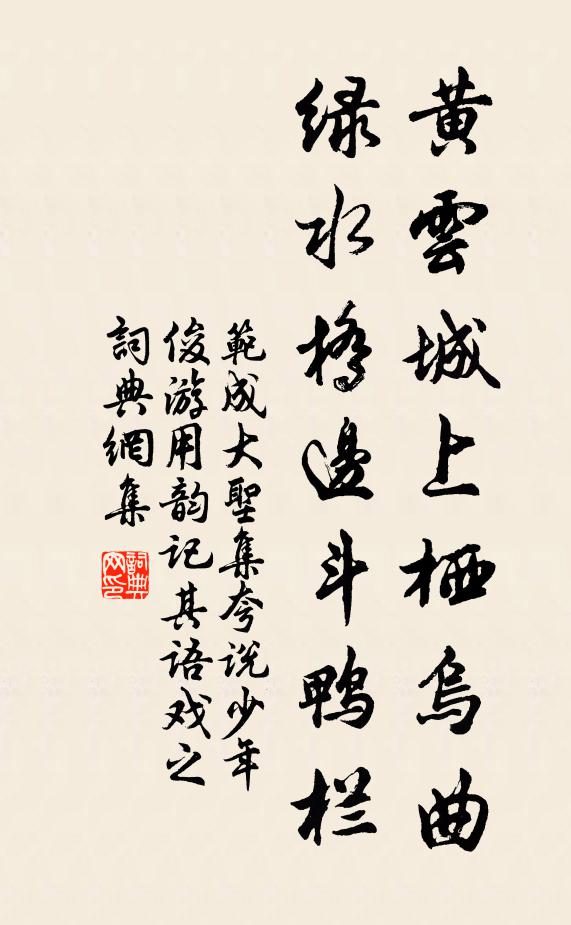 黄雲城上栖烏曲
緑水橋邊斗鴨栏
範成大聖集夸说少年
俊游用韵记其语戏之
詞典網集
詞典
网印